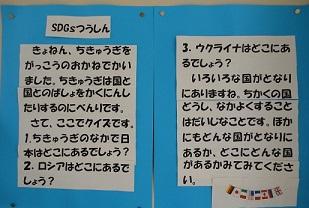 SDGsつうしん
きょねん、ちきゅうぎを
がっこうのおかねでかい
ました。ちきゅうぎは国と
国とのばしょをかくにんし
たりするのにべんりです。
さて、ここでクイズです。
1.ちきゅうぎのなかで日
本はどこにあるでしょう？
2. ロシアはどこにあるで
しょう？
3. ウクライナはどこにあ
るでしょう？
いろいろな国がとなり
にありますね。ちかくの国
どうし、なかよくすること
はだいじなことです。ほか
にもどんな国がとなりに
あるか、どこにどんな国
があるかみてみてくださ
い。